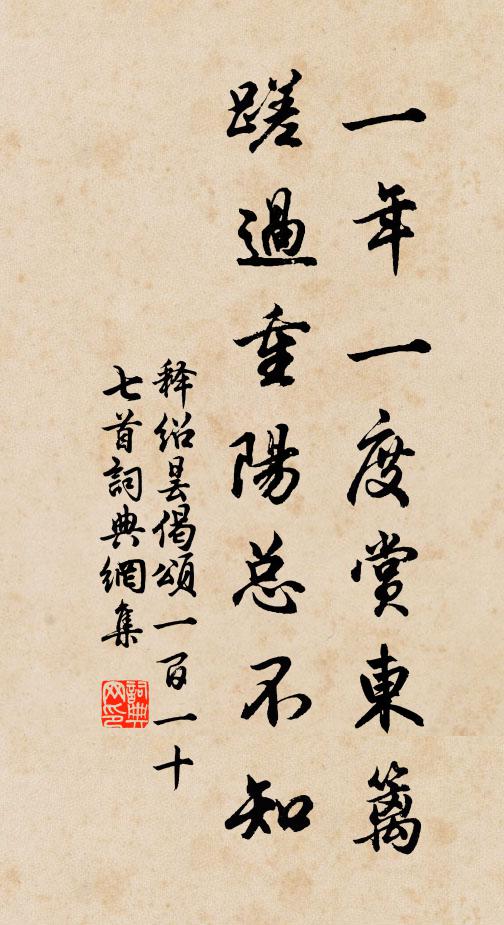 一年一度賞東籬
蹉過重陽总不知
释绍昙偈頌一百一十
七首詞典網集
詞典
网印